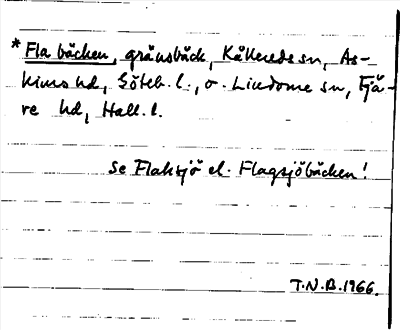 * Fla bäcken, gränsbäck, Kållereds sn, As-
kims hd, Göteb. l., o. Lindome sn, Fjä-
re hd, Hall. l.
se Flaksjö el. Flagsjöbäcken!
T.N.B. 1966.